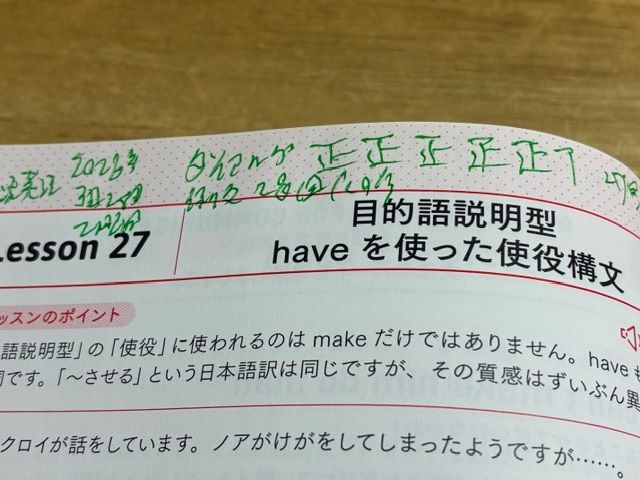 2026年
正 正 正 正 正 丅
Lesson 27
目的語説明型
have を使った使役構文
ッスンのポイント
語説明型」の「使役」に使われるのは make だけではありません。have も
詞です。「〜させる」という日本語訳は同じですが、その質感はずいぶん異
クロイが話をしています。ノアがけがをしてしまったようですが……。